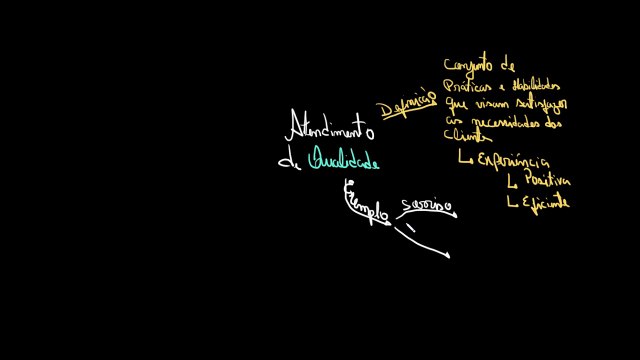 Atendimento
de Qualidade
Definição
Conjunto de
Práticas e Habilidades
que visam satisfazer
as necessidades dos
Cliente
Experiência
Positiva
Eficiente
Exemplo
Sorriso